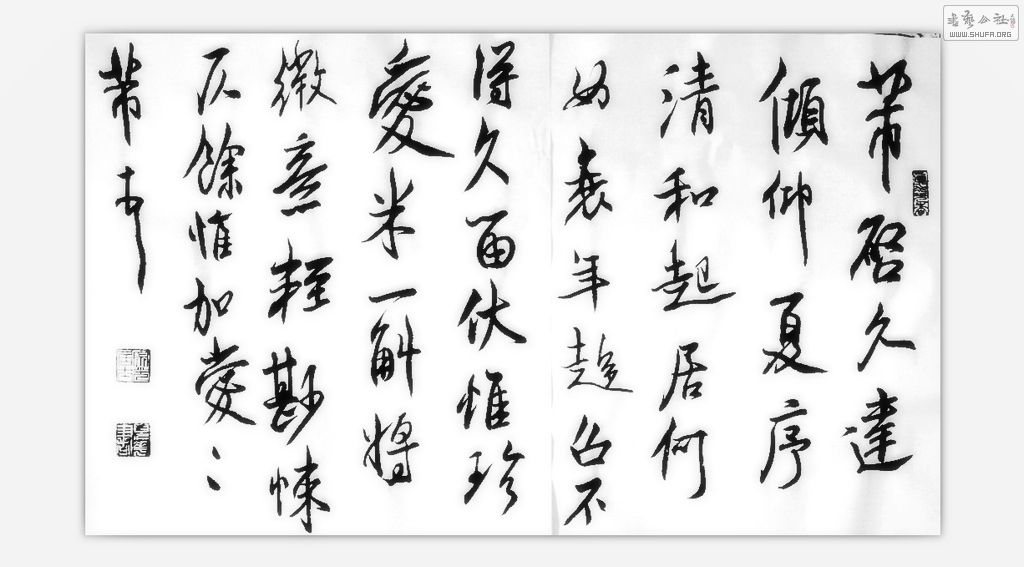 芾启久違
傾仰夏序
清和起居何
如衰年趍召不
得久留伏惟珍
愛米一斛將
微意輕尠悚
仄餘惟加愛〻
芾
書藝公社
WWW.SHUFA.ORG